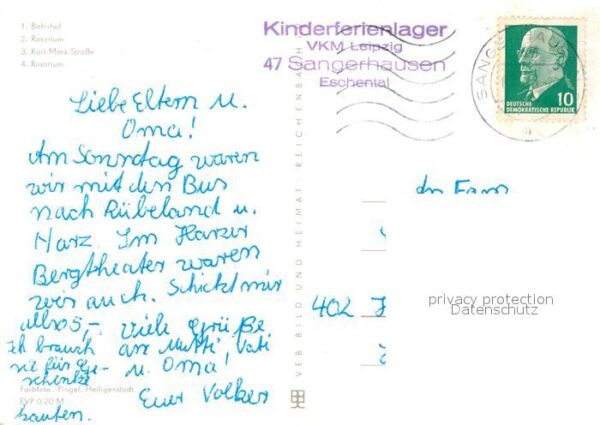 1. Bahnhof
2. Rosarium
3. Karl-Marx-Straße
4. Rosarium
Liebe Eltern u.
Oma!
Am Sonntag waren
wir mit den Bus
nach Rübeland u.
Harz. Im Harzer
Bergtheater waren
wir auch. Schickt mir
5,- viele Grüße
Ich brauch an Mutti, Vati
sie für Ge- u. Oma!
schenke
Euer Volker
kaufen.
Farbfoto: Pingel, Heiligenstadt
EVP 0,20 M
VEB BILD UND HEIMAT · REICHENBACH
Kinderferienlager
VKM Leipzig
47 Sangerhausen
Eschental
SANGERHAUSEN
DEUTSCHE
DEMOKRATISCHE REPUBLIK
10
An Fam
402
privacy protection
Datenschutz